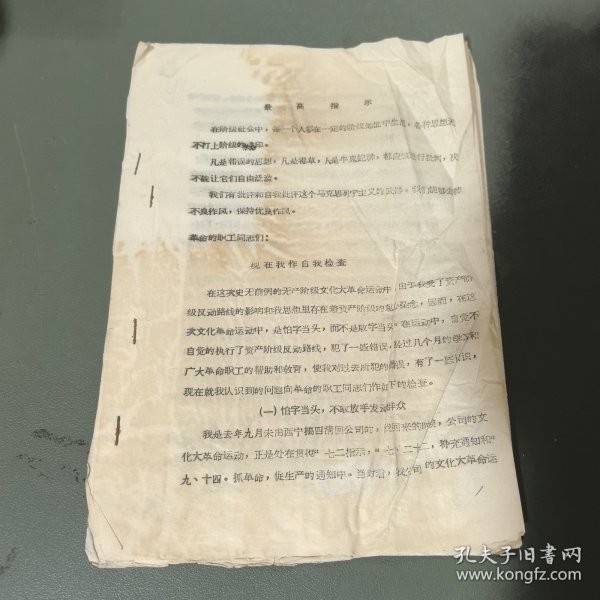 最 高 指 示
在阶级社会中，每一个人都在一定的阶级地位中生活，各种思想无
不打上阶级的烙印。
凡是错误的思想，凡是毒草，凡是牛鬼蛇神，都应该进行批判，决
不能让它们自由泛滥。
我们有批评和自我批评这个马克思列宁主义的武器。我们能够去掉
不良作风，保持优良作风。
革命的职工同志们：
现在我作自我检查
在这次史无前例的无产阶级文化大革命运动中，由于我受了资产阶
级反动路线的影响和我思想里存在着资产阶级的私心杂念，因而，在这
次文化革命运动中，是怕字当头，而不是敢字当头。在运动中，自觉不
自觉的执行了资产阶级反动路线，犯了一些错误，经过几个月的学习和
广大革命职工的帮助和教育，使我对过去所犯的错误，有了一些认识，
现在就我认识到的问题向革命的职工同志们作如下的检查。
(一)怕字当头，不敢放手发动群众
我是去年九月末由西宁搞四清回公司的，我回来的时候，公司的文
化大革命运动，正是处在贯彻"七二指示，"七、二十二，补充通知和"
九、十四。抓革命，促生产的通知中。当时看，我公司的文化大革命运
孔夫子旧书网
www.kongfz.com